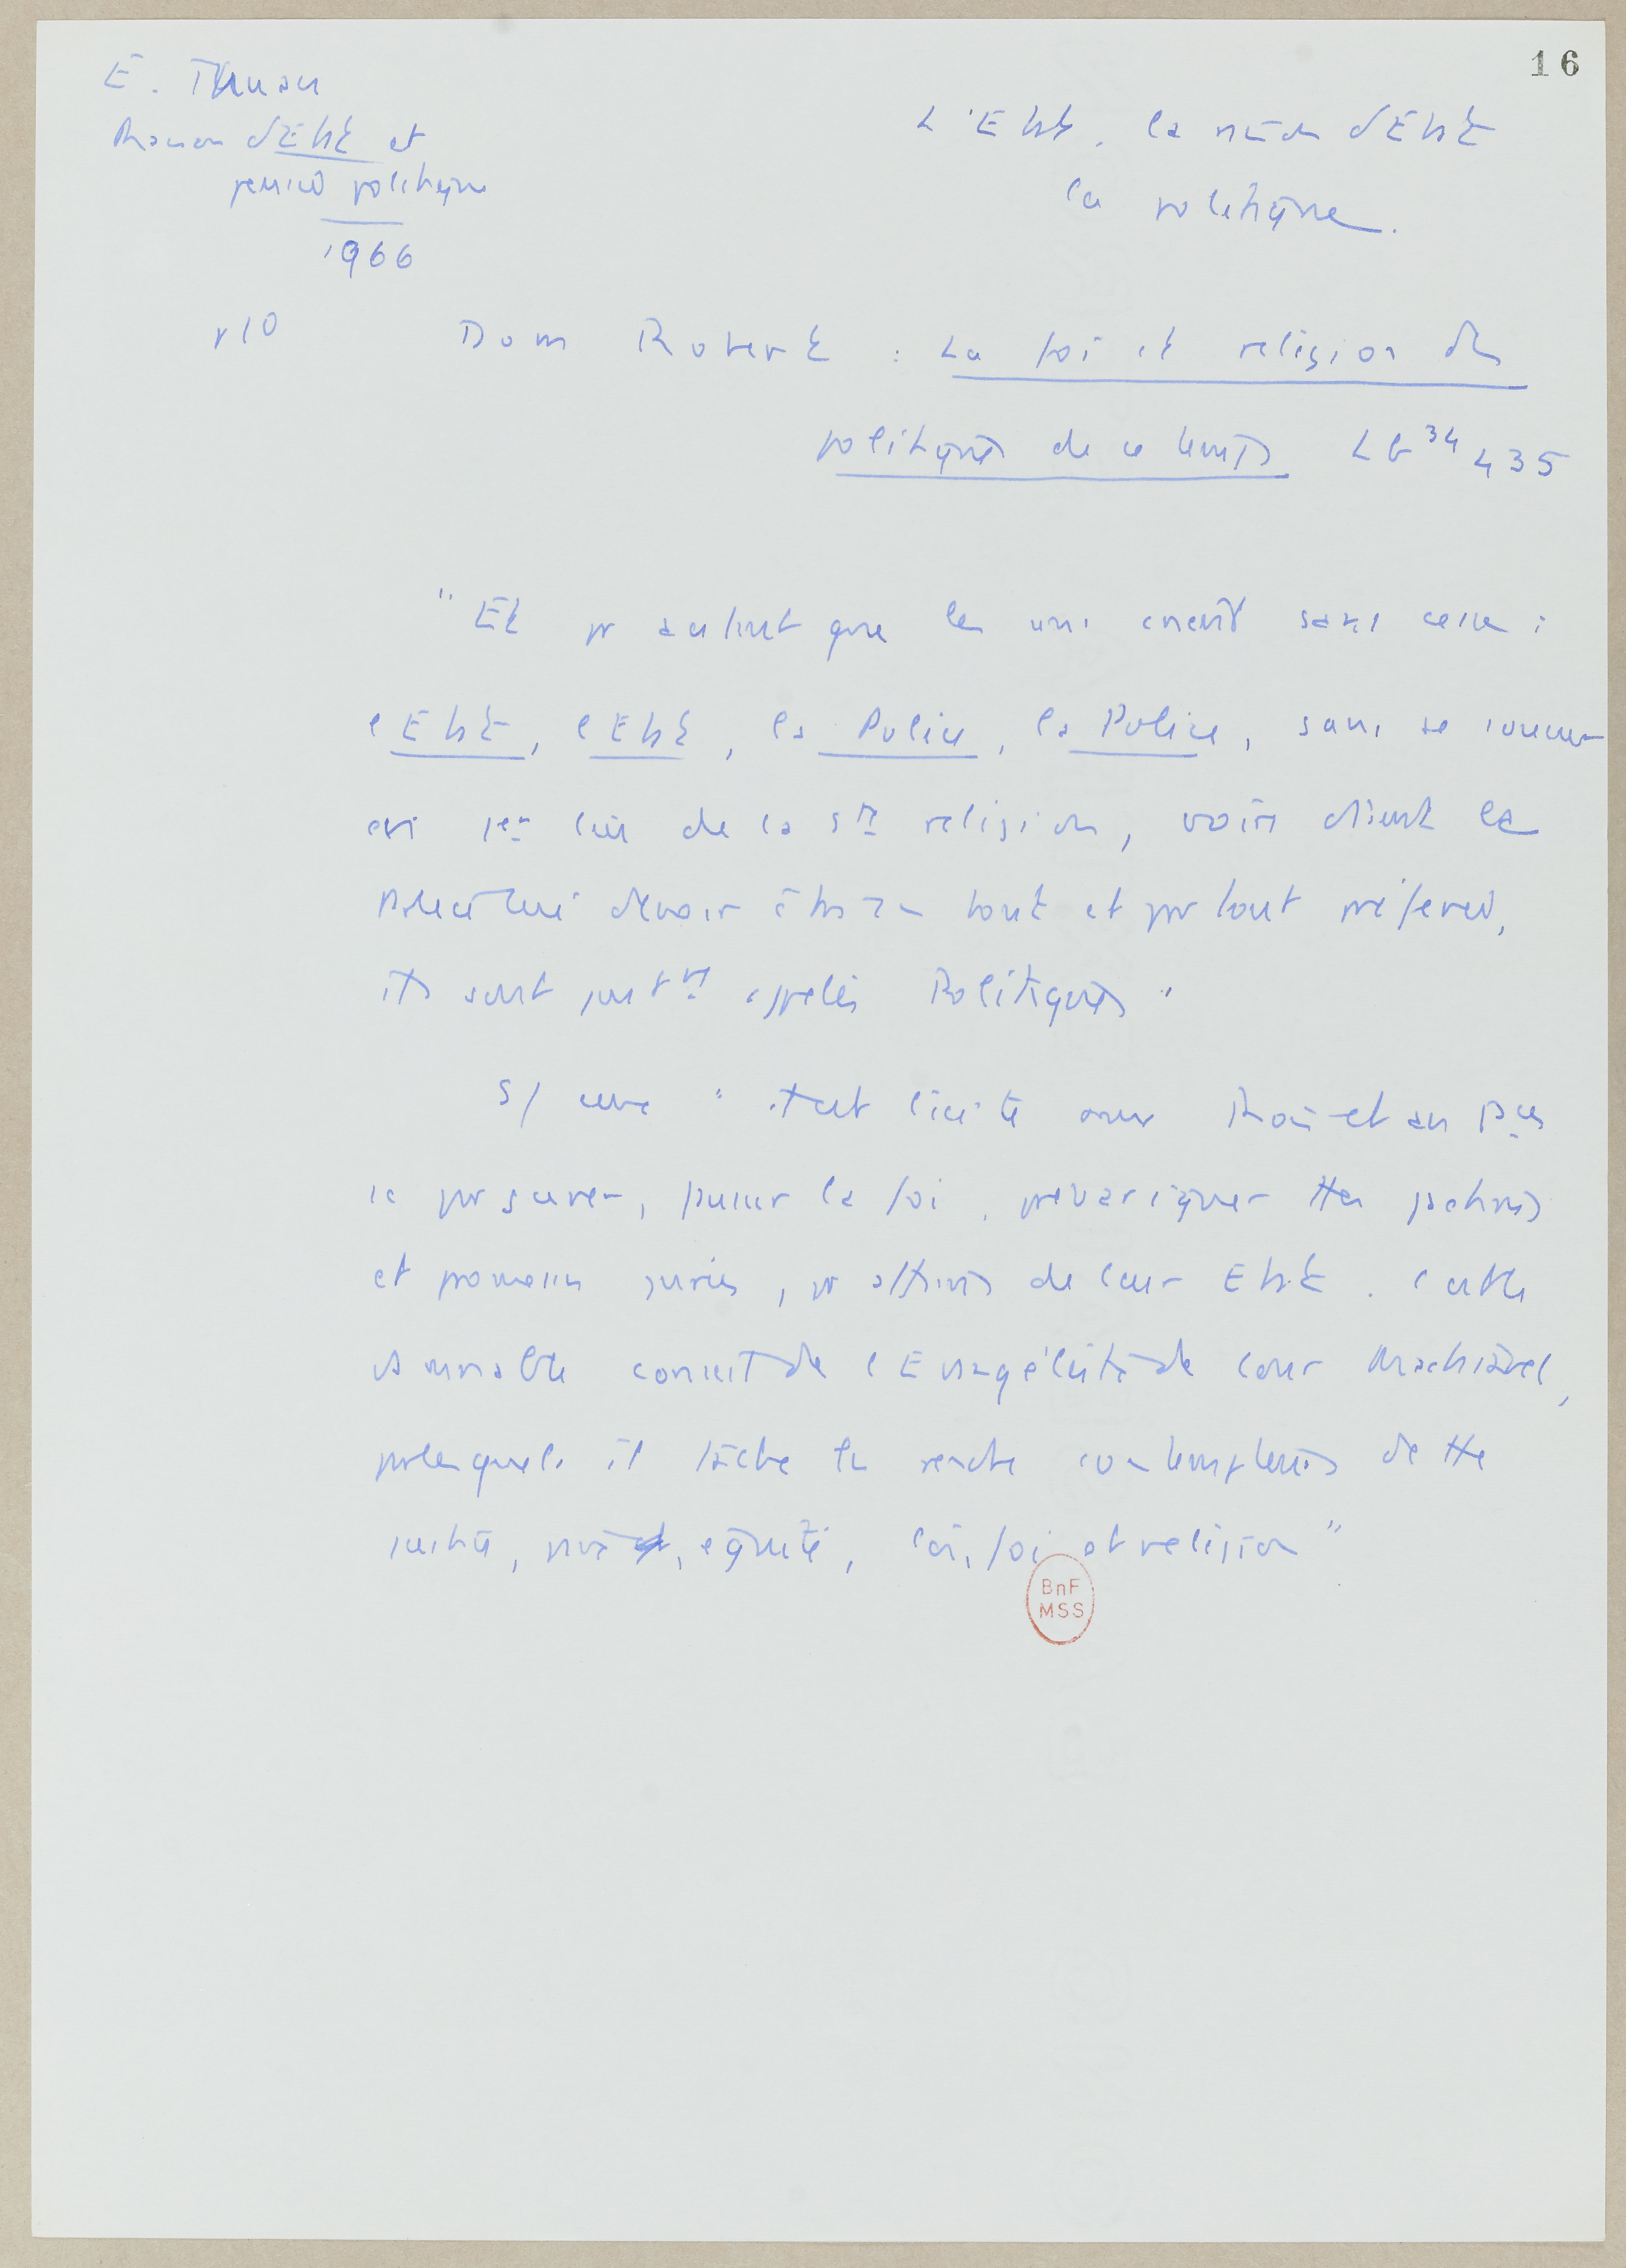 16
E. Thuau
Raison d'Etat et
pensée politique
1966
L'Etat, la raison d'Etat
la politique.
p 10 Dom Robert : La foi et religion des
politiques de ce temps Lb 34 435
"Et pr autant que les uns crient sans cesse :
l'Etat, l'Etat, la Police, la Police, sans se soucier
en 1er lieu de la ste religion, voire disent
devoir être en tout et par tout préférés,
ils sont justmt appelés Politiques"
S/ "Est licite aux Rois et aux Pces
pr , la foi, prévariquer ttes
et promesses jurées, pr affaires de leur Etat. C'est le
conseil de l'Evangéliste de leur Machiavel,
par lesquels il tâche les rendre contempteurs de tte
justice, , équité, loi, foi et religion"
BnF
MSS